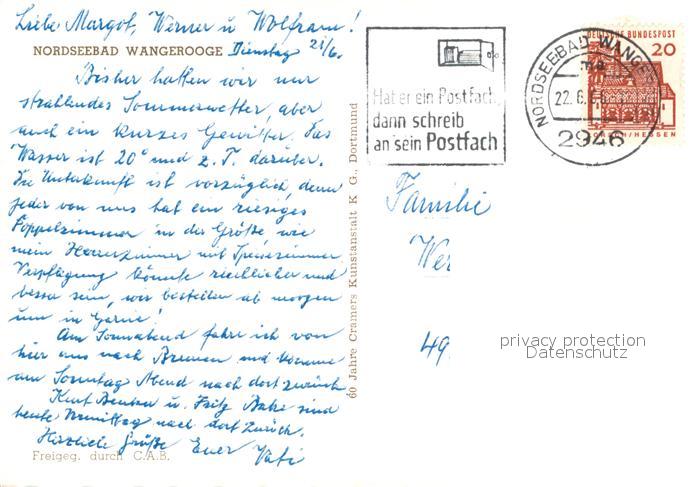 Liebe Margot, Werner u Wolfram!
NORDSEEBAD WANGEROOGE Dienstag 21/6.
Bisher hatten wir nur
strahlendes Sommerwetter, aber
auch ein kurzes Gewitter. Das
Wasser ist 20° und z. T. darüber.
Die Unterkunft ist vorzüglich, denn
jeder von uns hat ein riesiges
Doppelzimmer in der Größe wie
mein Herrenzimmer mit Speisezimmer.
Verpflegung könnte reichlicher und
besser sein, wir bestellen ab morgen
um in Garni!
Am Sonnabend fahre ich von
hier aus nach Bremen und komme
am Sonntag Abend nach dort zurück
Kurt u. Fritz sind
heute Vormittag nach dort zurück.
Herzliche Grüße Euer Vati
Freigeg. durch C.A.B.
60 Jahre Cramers Kunstanstalt K G., Dortmund
Hat er ein Postfach,
dann schreib
an sein Postfach
NORDSEEBAD WANGE
22.6.
2946
DEUTSCHE BUNDESPOST
20
HESSEN
Familie
Wer
49
privacy protection
Datenschutz